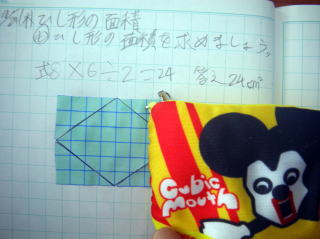 ひし形の面積
① ひし形の面積を求めましょう。
式 8×6÷2=24 答え 24cm²
Cubic
mouth